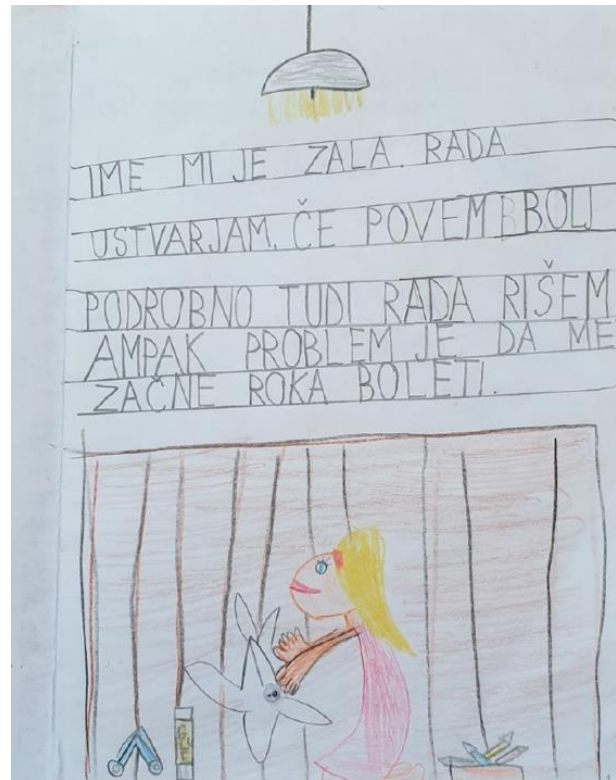 IME MI JE ZALA. RADA
USTVARJAM. ČE POVEM BBOLJ
PODROBNO TUDI RADA RIŠEM
AMPAK PROBLEM JE DA ME
ZAČNE ROKA BOLETI.